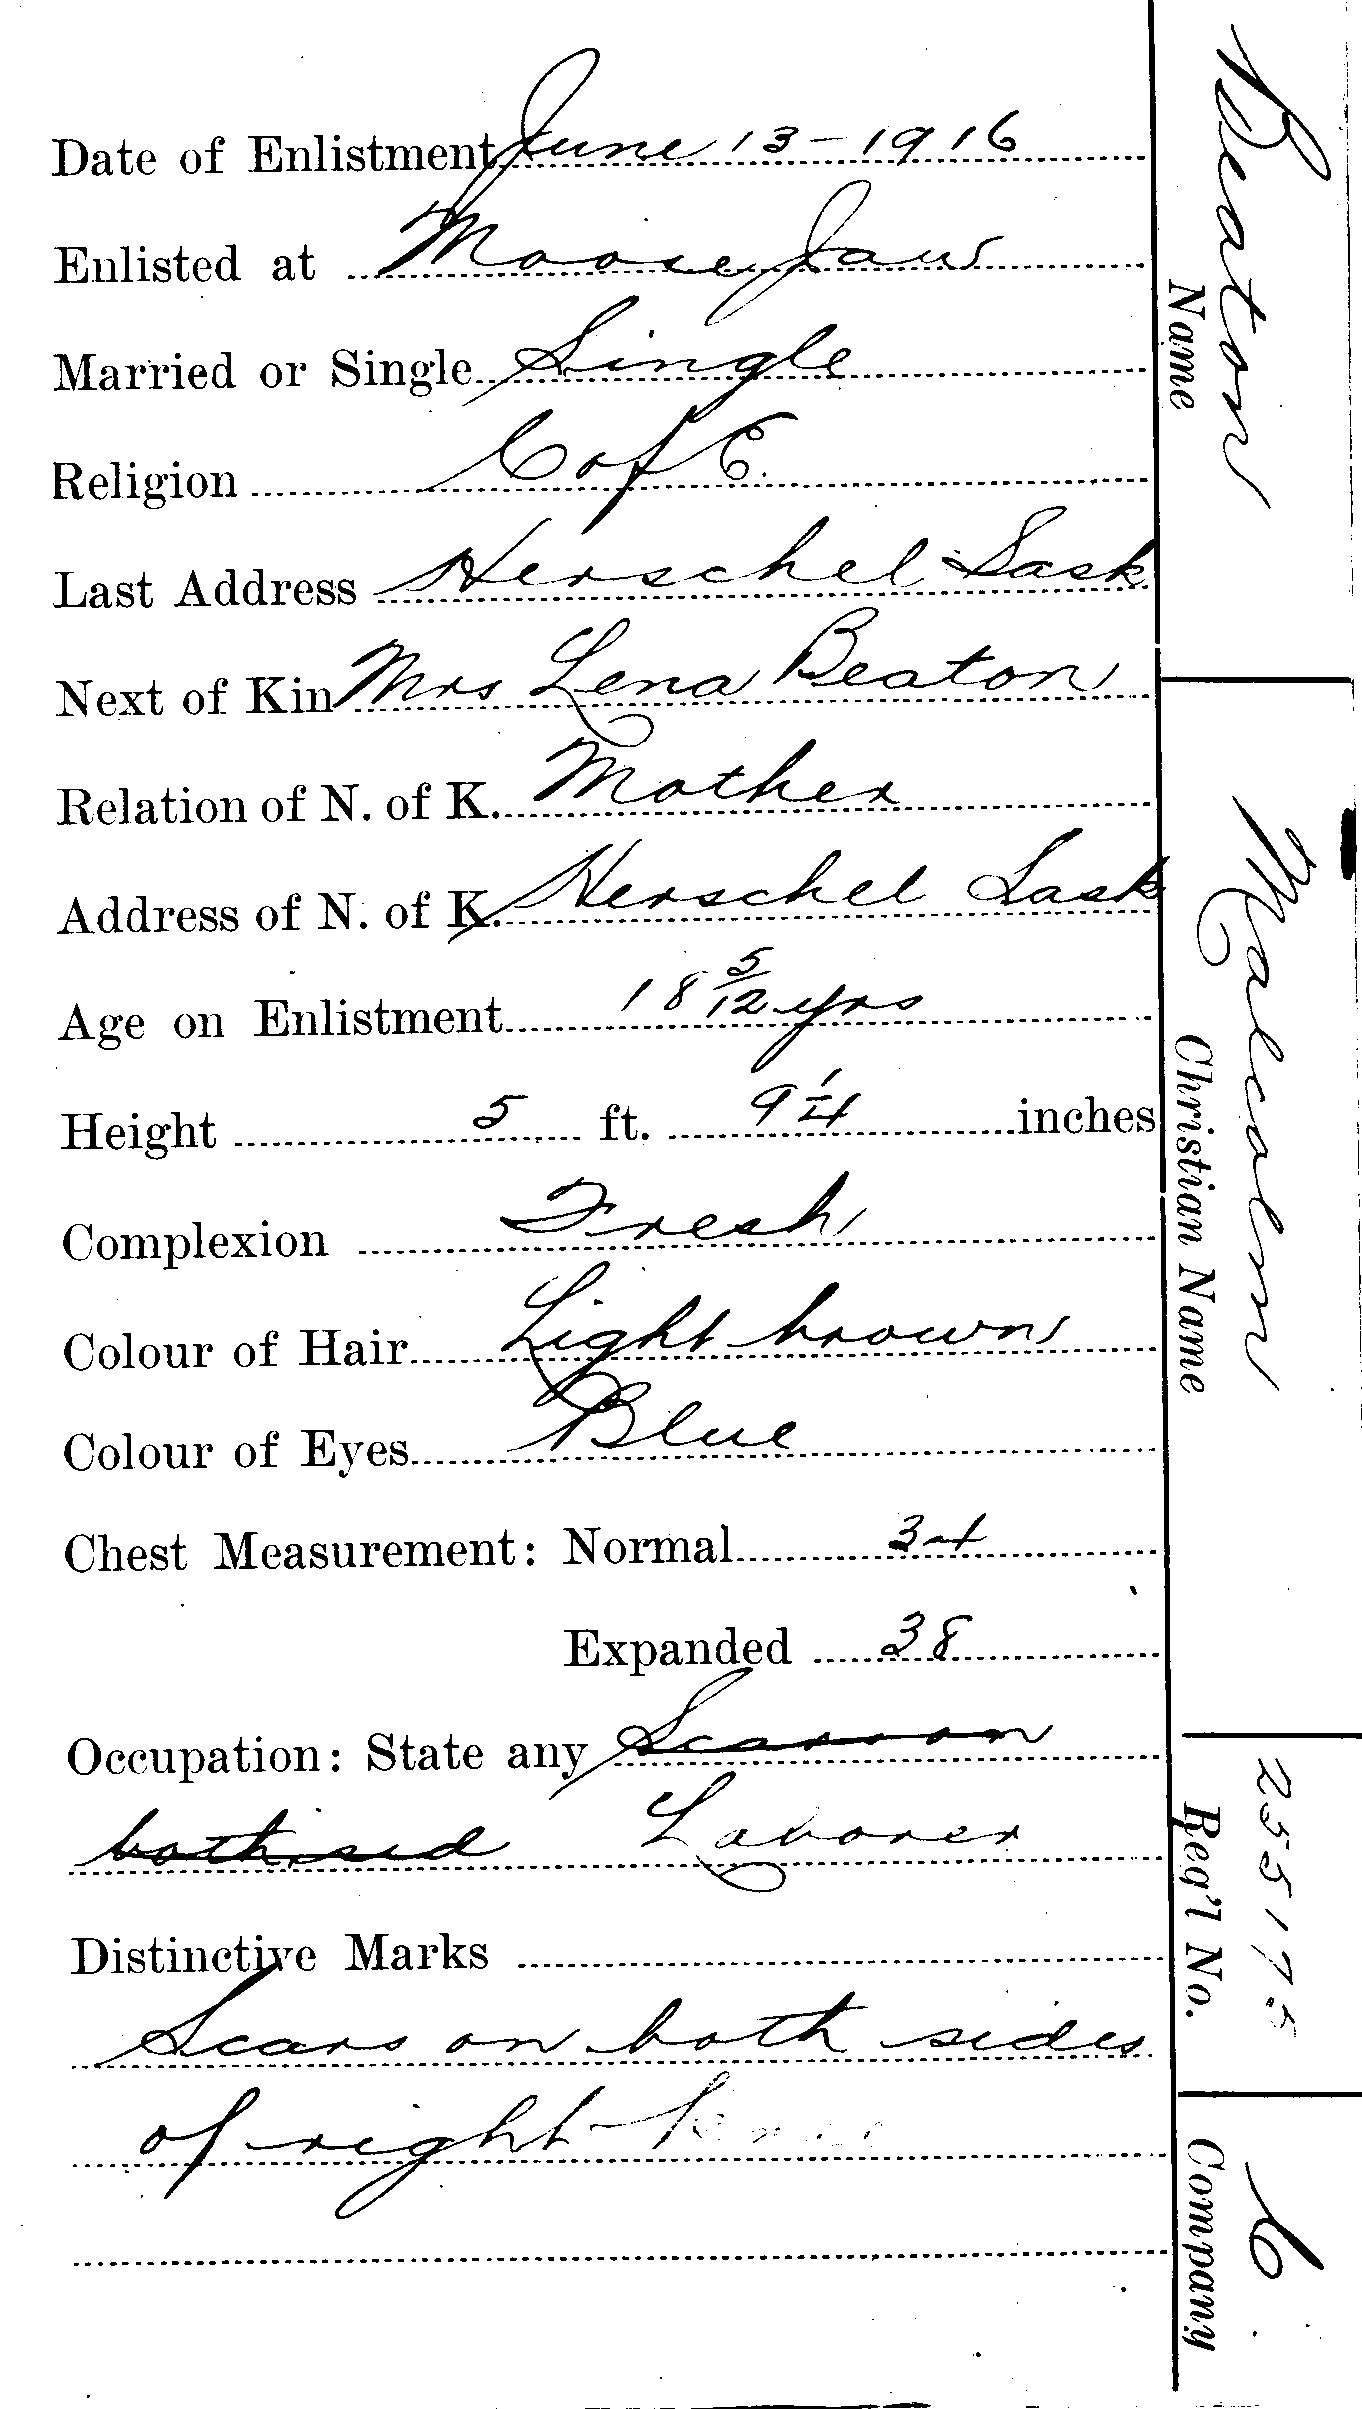 Date of Enlistment June 13-1916
Enlisted at Moose Jaw
Married or Single Single
Religion C of E.
Last Address Herschel Sask
Next of Kin Mrs Lena Beaton
Relation of N. of K. Mother
Address of N. of K. Herschel Sask
Age on Enlistment 18 5/12 yrs
Height 5 ft. 9 1/4 inches
Complexion Fresh
Colour of Hair Light brown
Colour of Eyes Blue
Chest Measurement: Normal 34
Expanded 38
Occupation: State any Scars on
both sid Laborer
Distinctive Marks
Scars on both sides
of right knee
Beaton
Name
Malcolm
Christian Name
255175
Reg'l No.
C
Company